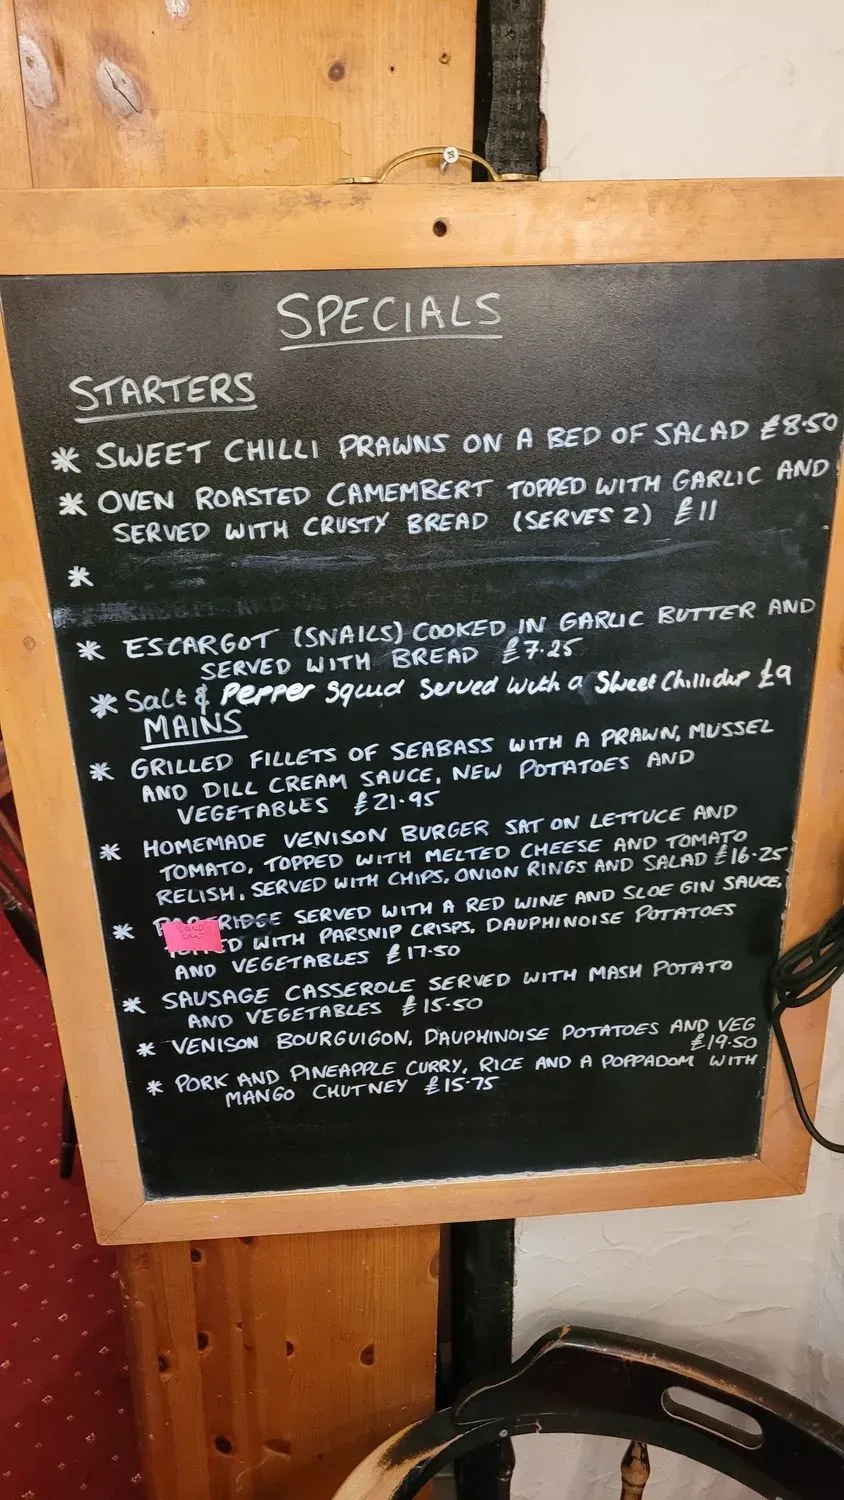 SPECIALS
STARTERS
* SWEET CHILLI PRAWNS ON A BED OF SALAD £8.50
* OVEN ROASTED CAMEMBERT TOPPED WITH GARLIC AND
SERVED WITH CRUSTY BREAD (SERVES 2) £11
*
* ESCARGOT (SNAILS) COOKED IN GARLIC BUTTER AND
SERVED WITH BREAD £7.25
* Salt & Pepper Squid Served with a Sweet Chilli dip £9
MAINS
* GRILLED FILLETS OF SEABASS WITH A PRAWN, MUSSEL
AND DILL CREAM SAUCE, NEW POTATOES AND
VEGETABLES £21.95
* HOMEMADE VENISON BURGER SAT ON LETTUCE AND
TOMATO, TOPPED WITH MELTED CHEESE AND TOMATO
RELISH, SERVED WITH CHIPS, ONION RINGS AND SALAD £16.25
* PARTRIDGE SERVED WITH A RED WINE AND SLOE GIN SAUCE,
SOLD OUT
WITH PARSNIP CRISPS, DAUPHINOISE POTATOES
AND VEGETABLES £17.50
* SAUSAGE CASSEROLE SERVED WITH MASH POTATO
AND VEGETABLES £15.50
* VENISON BOURGUIGON, DAUPHINOISE POTATOES AND VEG
£19.50
* PORK AND PINEAPPLE CURRY, RICE AND A POPPADOM WITH
MANGO CHUTNEY £15.75